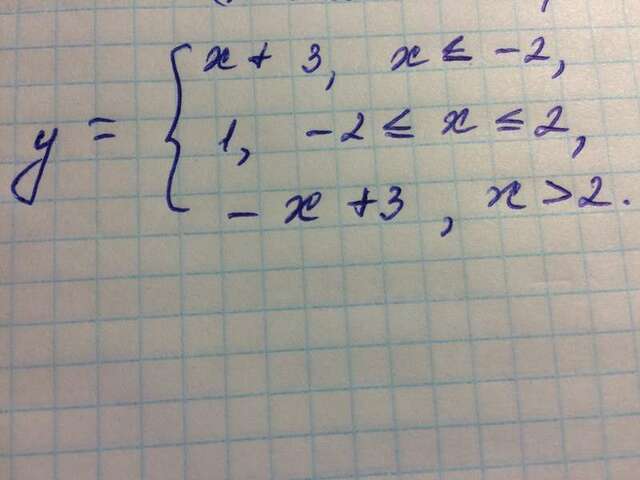 x + 3, x ≤ -2,
y = { 1, -2 ≤ x ≤ 2,
- x + 3, x > 2.